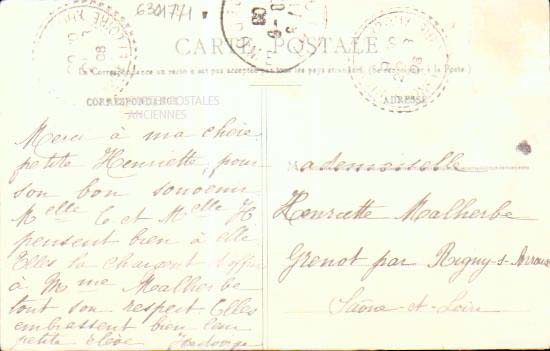 6301771
CARTE POSTALE
La Correspondance au recto n'est pas acceptée par tous les pays étrangers. (Se renseigner à la Poste.)
CORRESPONDANCE
ADRESSE
CARTES POSTALES
ANCIENNES
Merci à ma chère
petite Henriette, pour
son bon souvenir
Melle C et Melle H
pensent bien à elle
Elles la chargent d'offrir
à Mme Malherbe
tout son respect Elles
embrassent bien leur
petite élève
Mademoiselle
Henriette Malherbe
Grenot par Rigny-s-Arroux
Saône-et-Loire